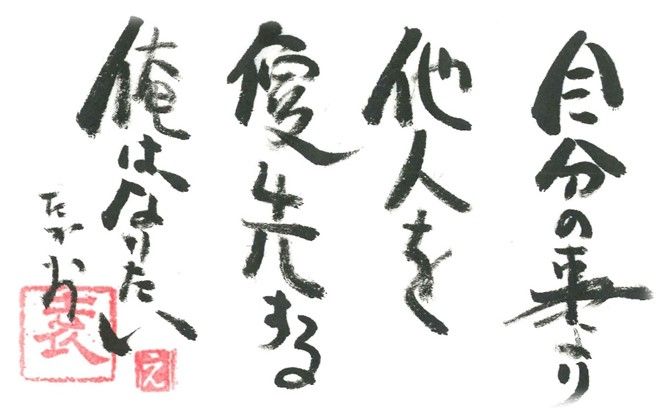 自分の事より
他人を
優先する
俺はなりたい
え